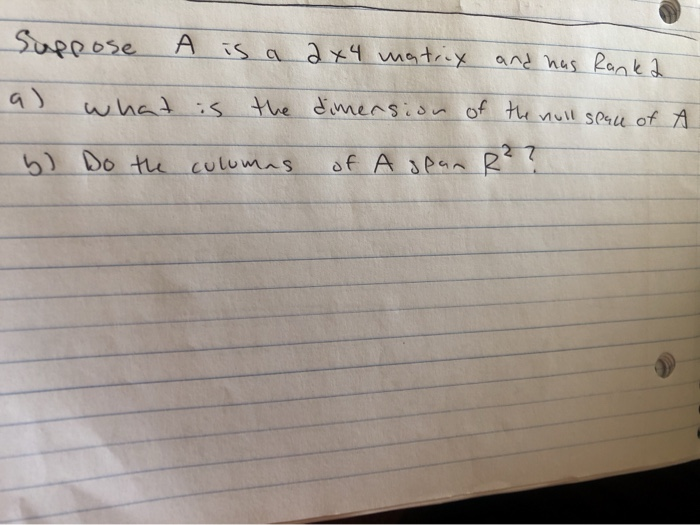 Suppose A is a 2x4 matrix and has Rank 2
a) what is the dimension of the null space of A
b) Do the columns of A span R² ?